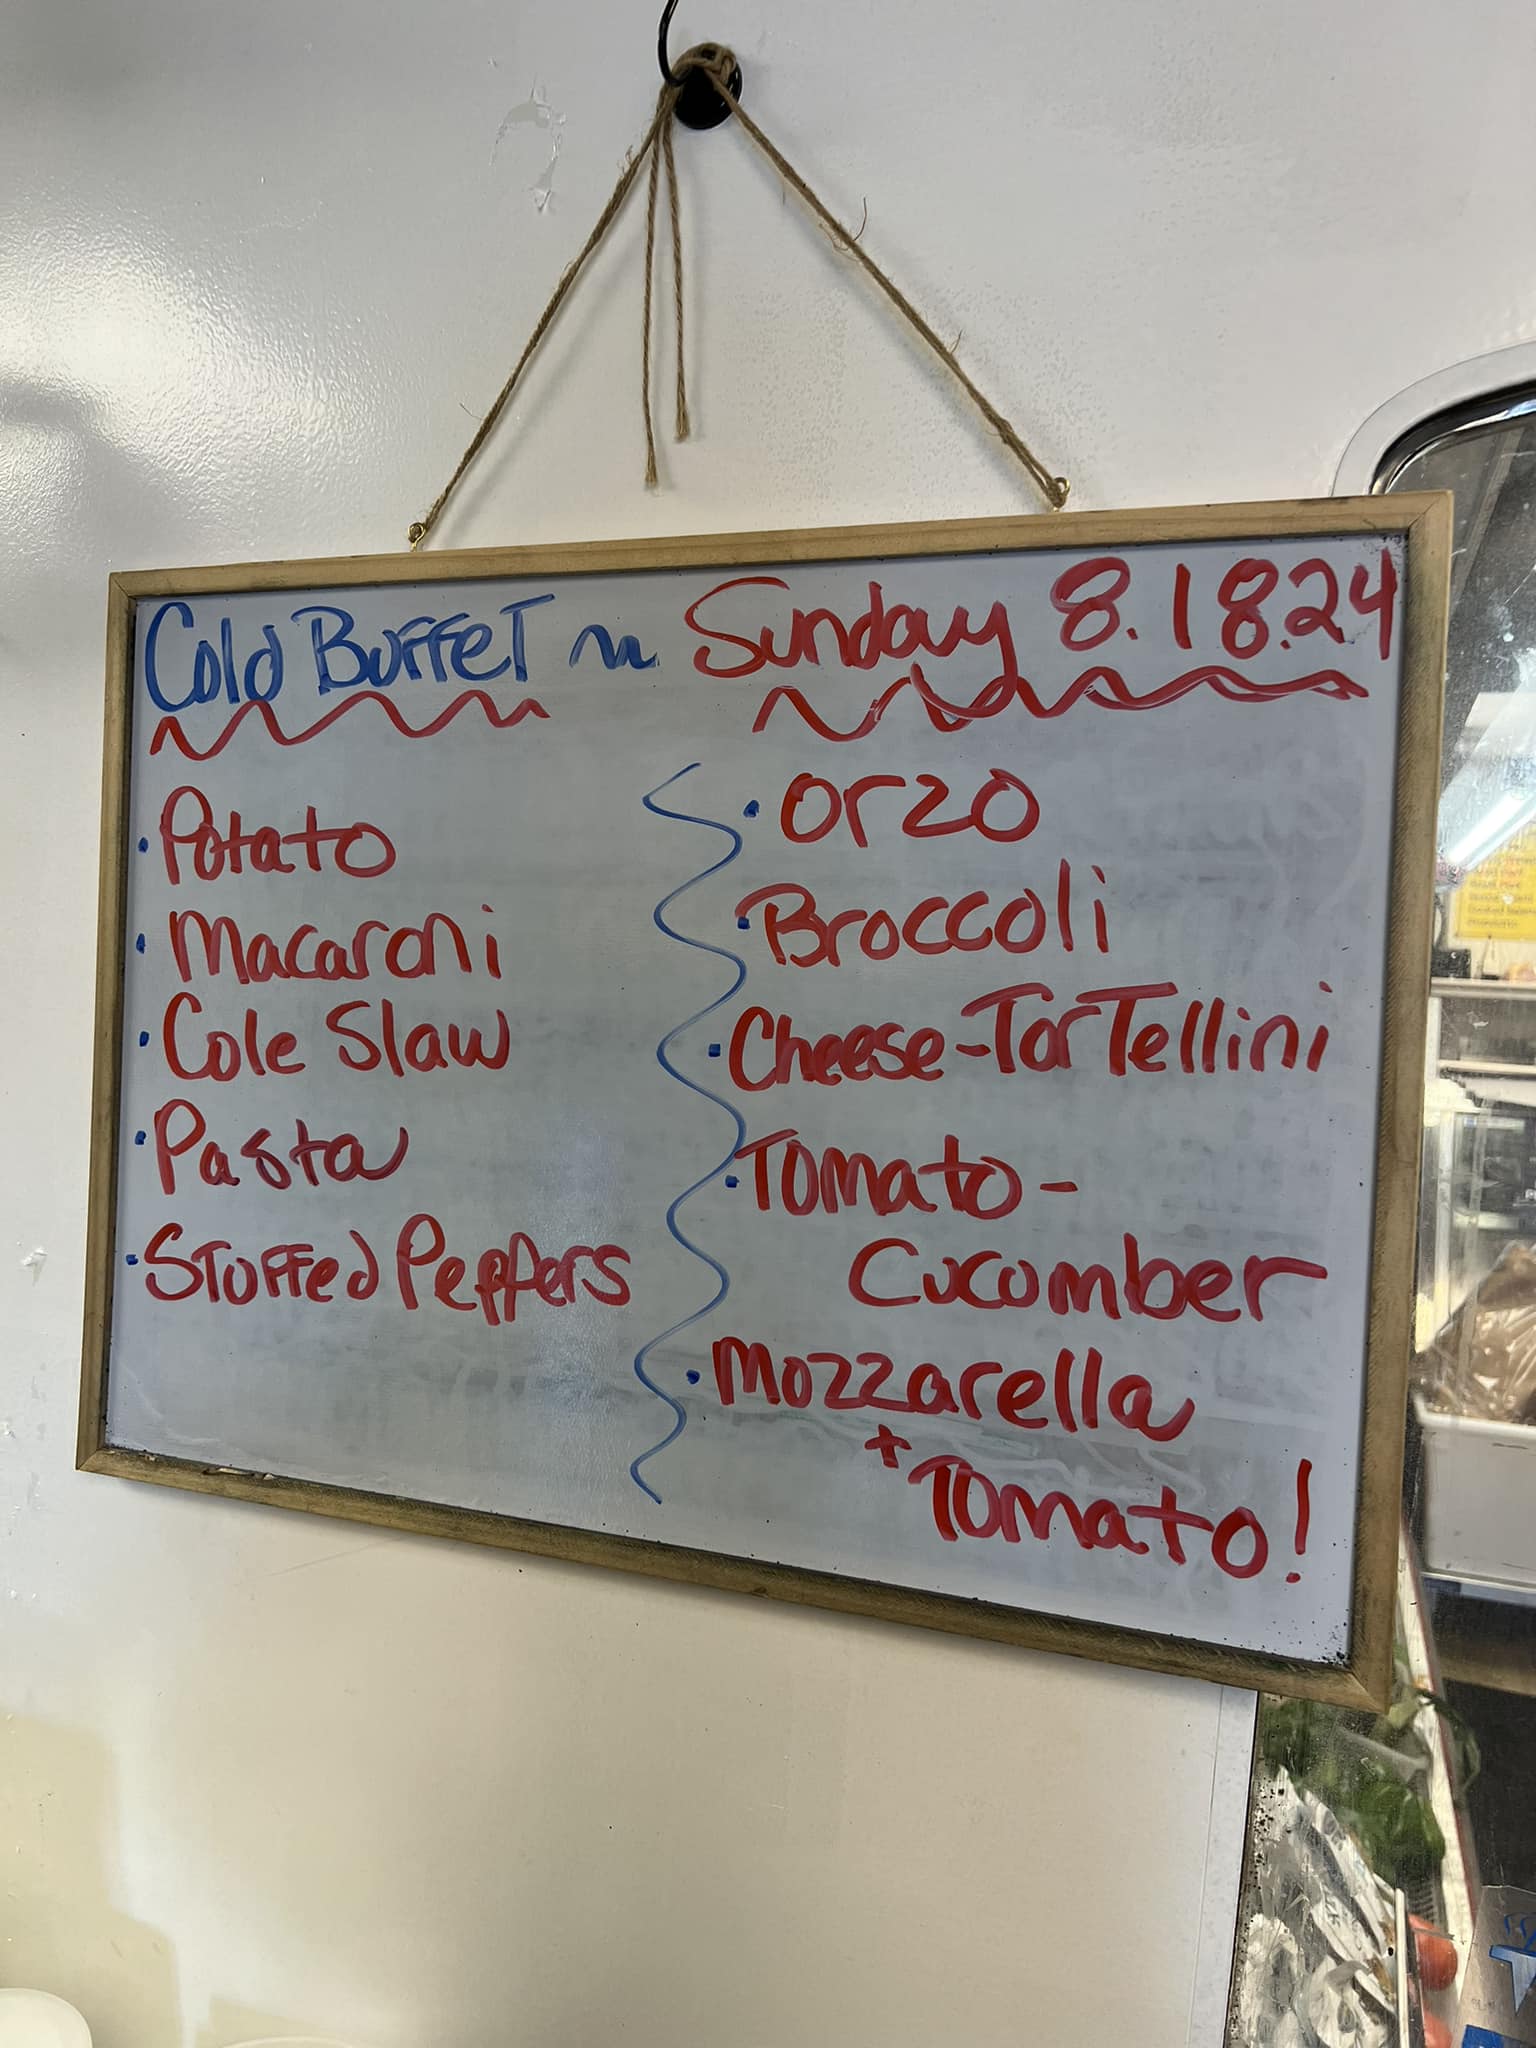 Cold Buffet ~ Sunday 8.18.24
· Potato
· Macaroni
· Cole Slaw
· Pasta
· Stuffed Peppers
· Orzo
· Broccoli
· Cheese-Tortellini
· Tomato-
Cucumber
· Mozzarella
+ Tomato!